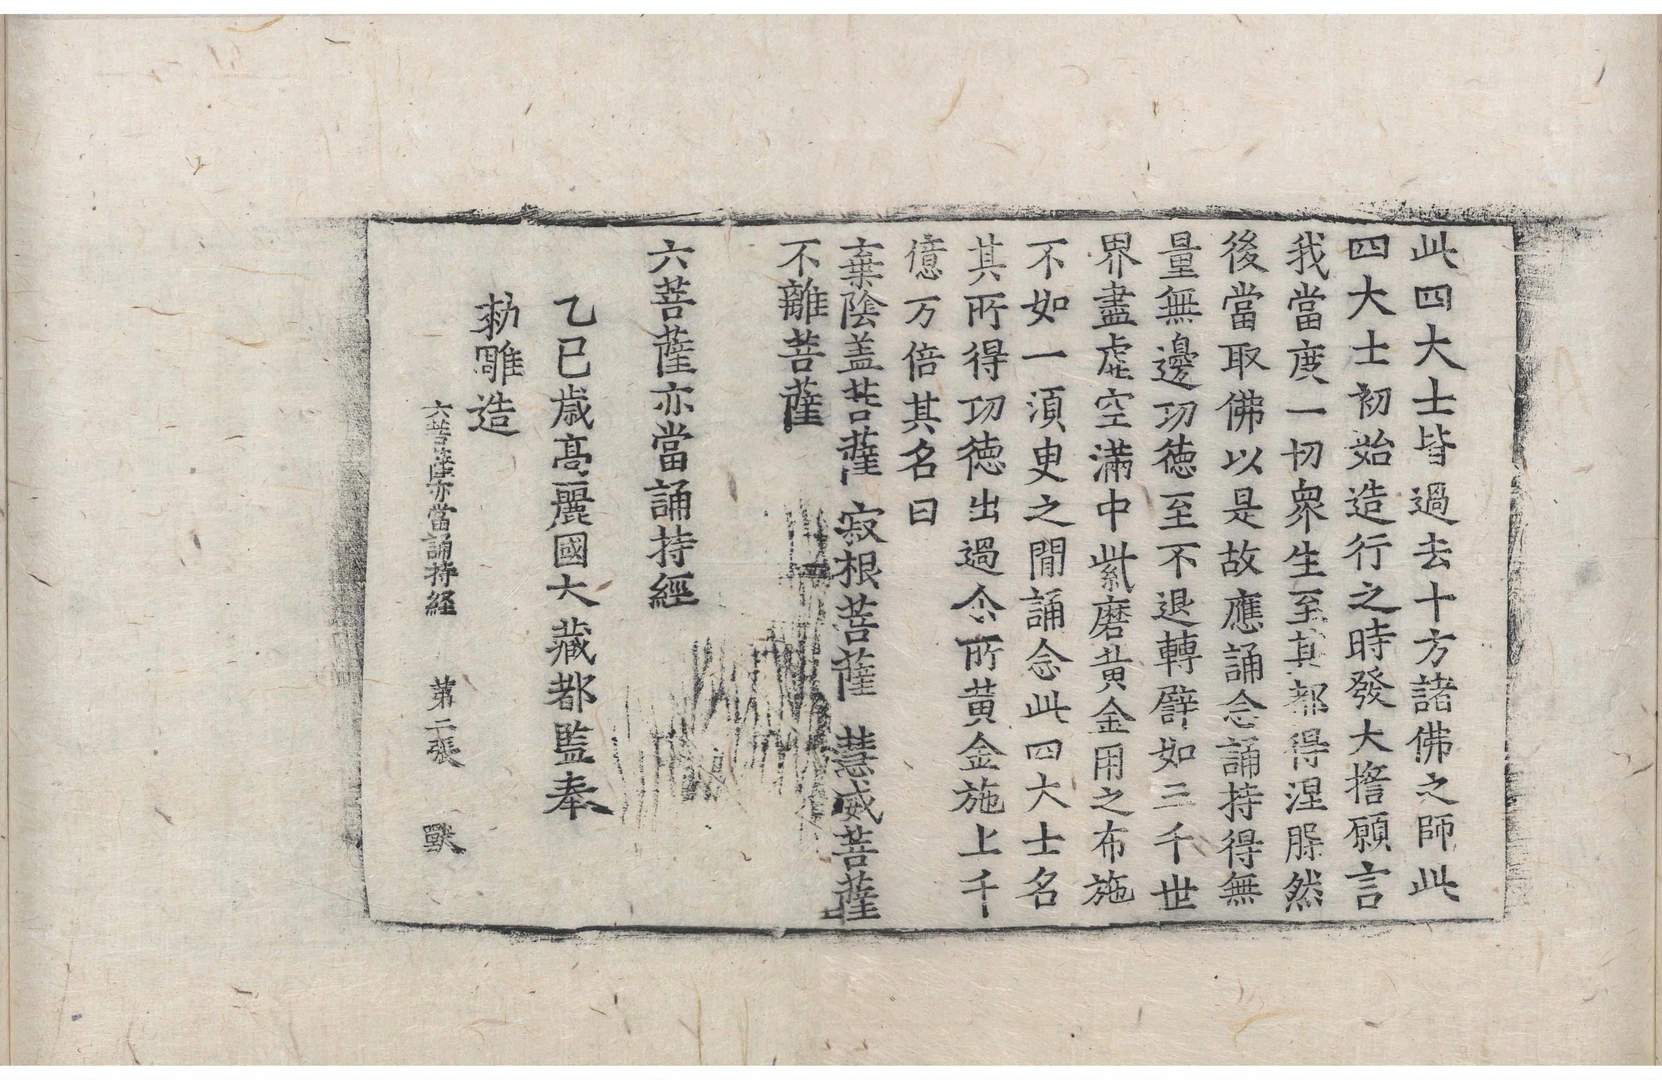 此四大士皆過去十方諸佛之師此
四大士初始造行之時發大擔願言
我當度一切衆生至其都得涅脲然
後當取佛以是故應誦念誦持得無
量無邊功徳至不退轉譬如三千世
界盡虛空滿中紫磨黃金用之布施
不如一須臾之閒誦念此四大士名
其所得功徳出過念所黃金施上千
億万倍其名曰
棄陰盖菩薩 寂根菩薩 慧威菩薩
不離菩薩
六菩薩亦當誦持經
乙巳歲高麗國大藏都監奉
勅雕造
六菩薩亦當誦持経 第二張 獸